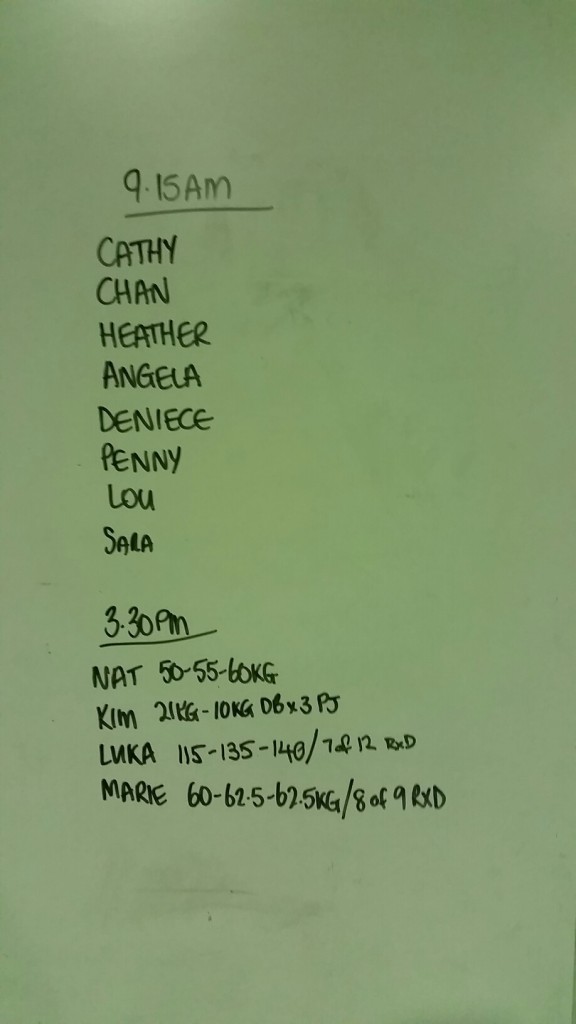 9.15AM
CATHY
CHAN
HEATHER
ANGELA
DENIECE
PENNY
LOU
SARA
3.30PM
NAT 50-55-60KG
KIM 21KG-10KG DBx3 PJ
LUKA 115-135-140/7 of 12 RXD
MARIE 60-62.5-62.5KG/8 of 9 RXD